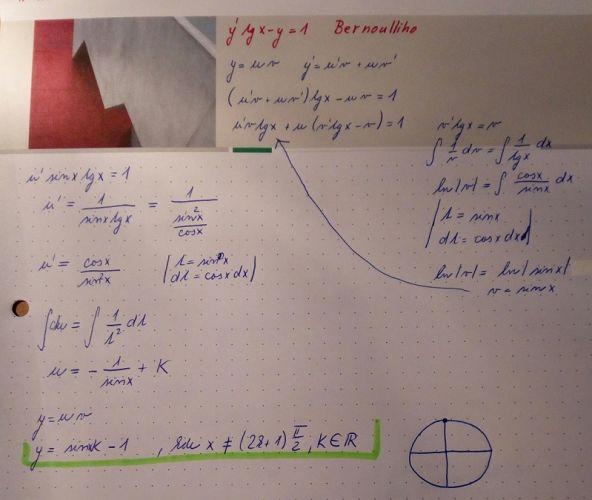 y' tgx - y = 1 Bernoulliho
y = uv y' = u'v + uv'
(u'v + uv') tgx - uv = 1
u'v tgx + u (v' tgx - v) = 1
v' tgx = v
∫ 1/v dv = ∫ 1/tgx dx
ln|v| = ∫ cosx/sinx dx
| t = sinx
dt = cosx dx |
ln|v| = ln|sinx|
v = sinx
u' sinx tgx = 1
u' = 1/(sinx tgx) = 1/(sin²x/cosx)
u' = cosx/sin²x | t = sinx
dt = cosx dx |
∫ du = ∫ 1/t² dt
u = - 1/sinx + K
y = uv
y = sinxK - 1 , kde x ≠ (2k+1) π/2, K∈ℝ